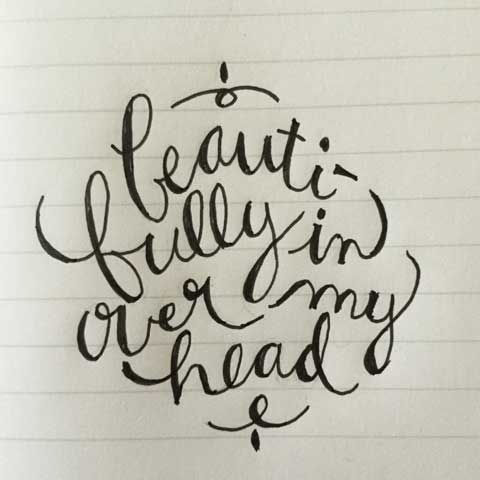 beauti-
fully in
over my
head